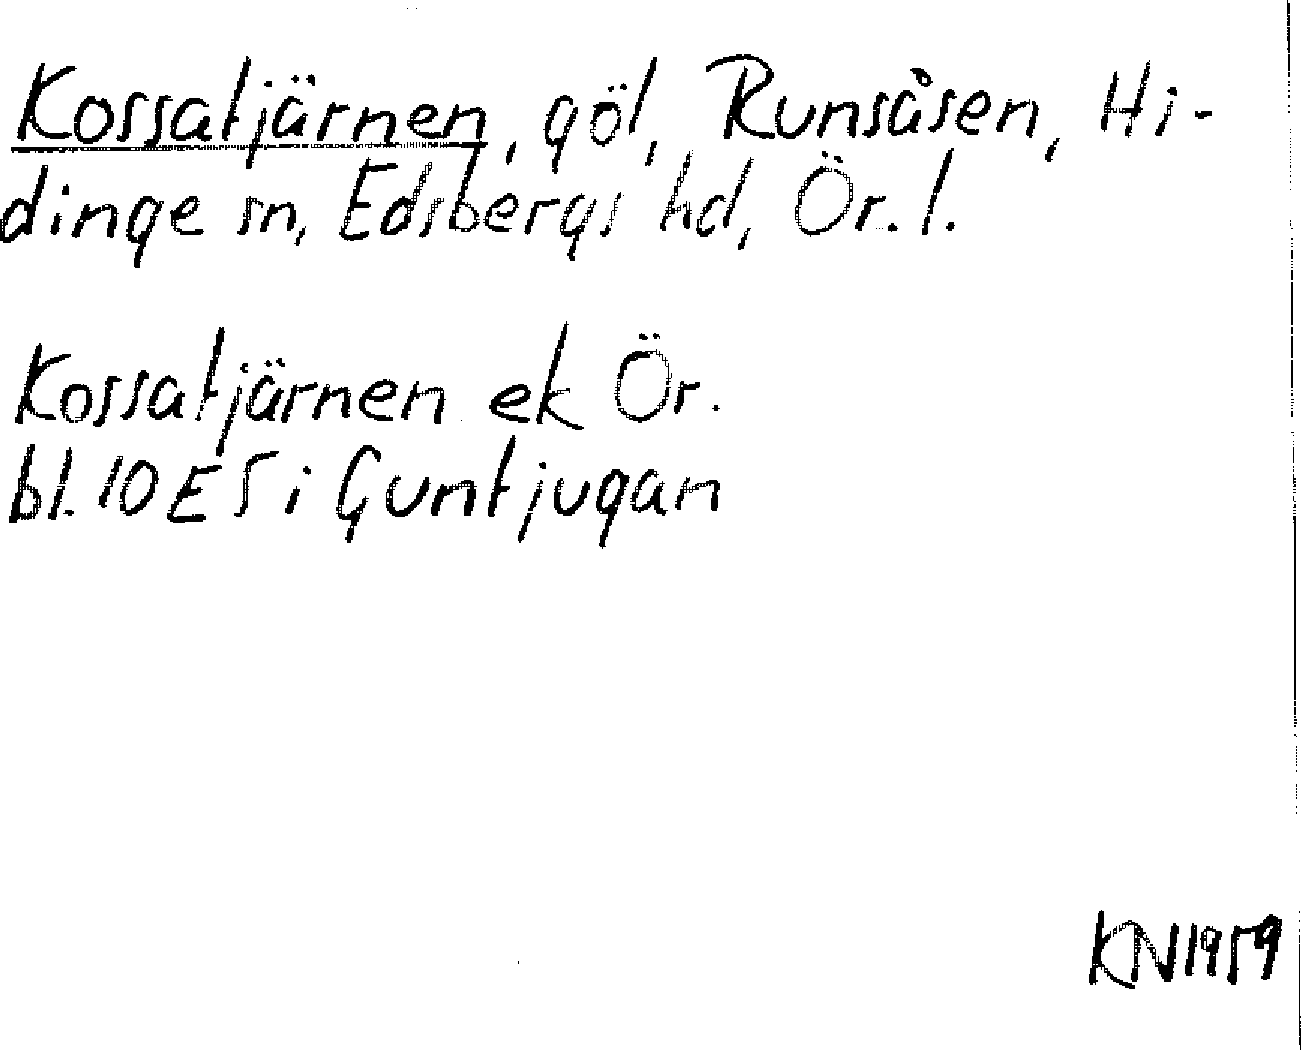 Kossatjärnen, göl, Runsåsen, Hi-
dinge sn, Edsbergs hd, Ör. l.
Kossatjärnen ek Ör.
bl. 10 E 5 i Guntjugan
KN1959